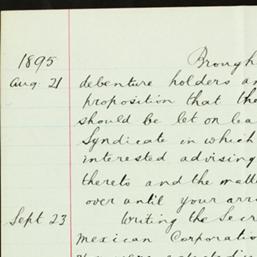 1895 Brough
Aug. 21 debenture holders an
proposition that the
should be let on lea
Syndicate in which
interested advising
thereto and the matt
over until your arri
Sept 23 Writing the Secr
Mexican Corporatio